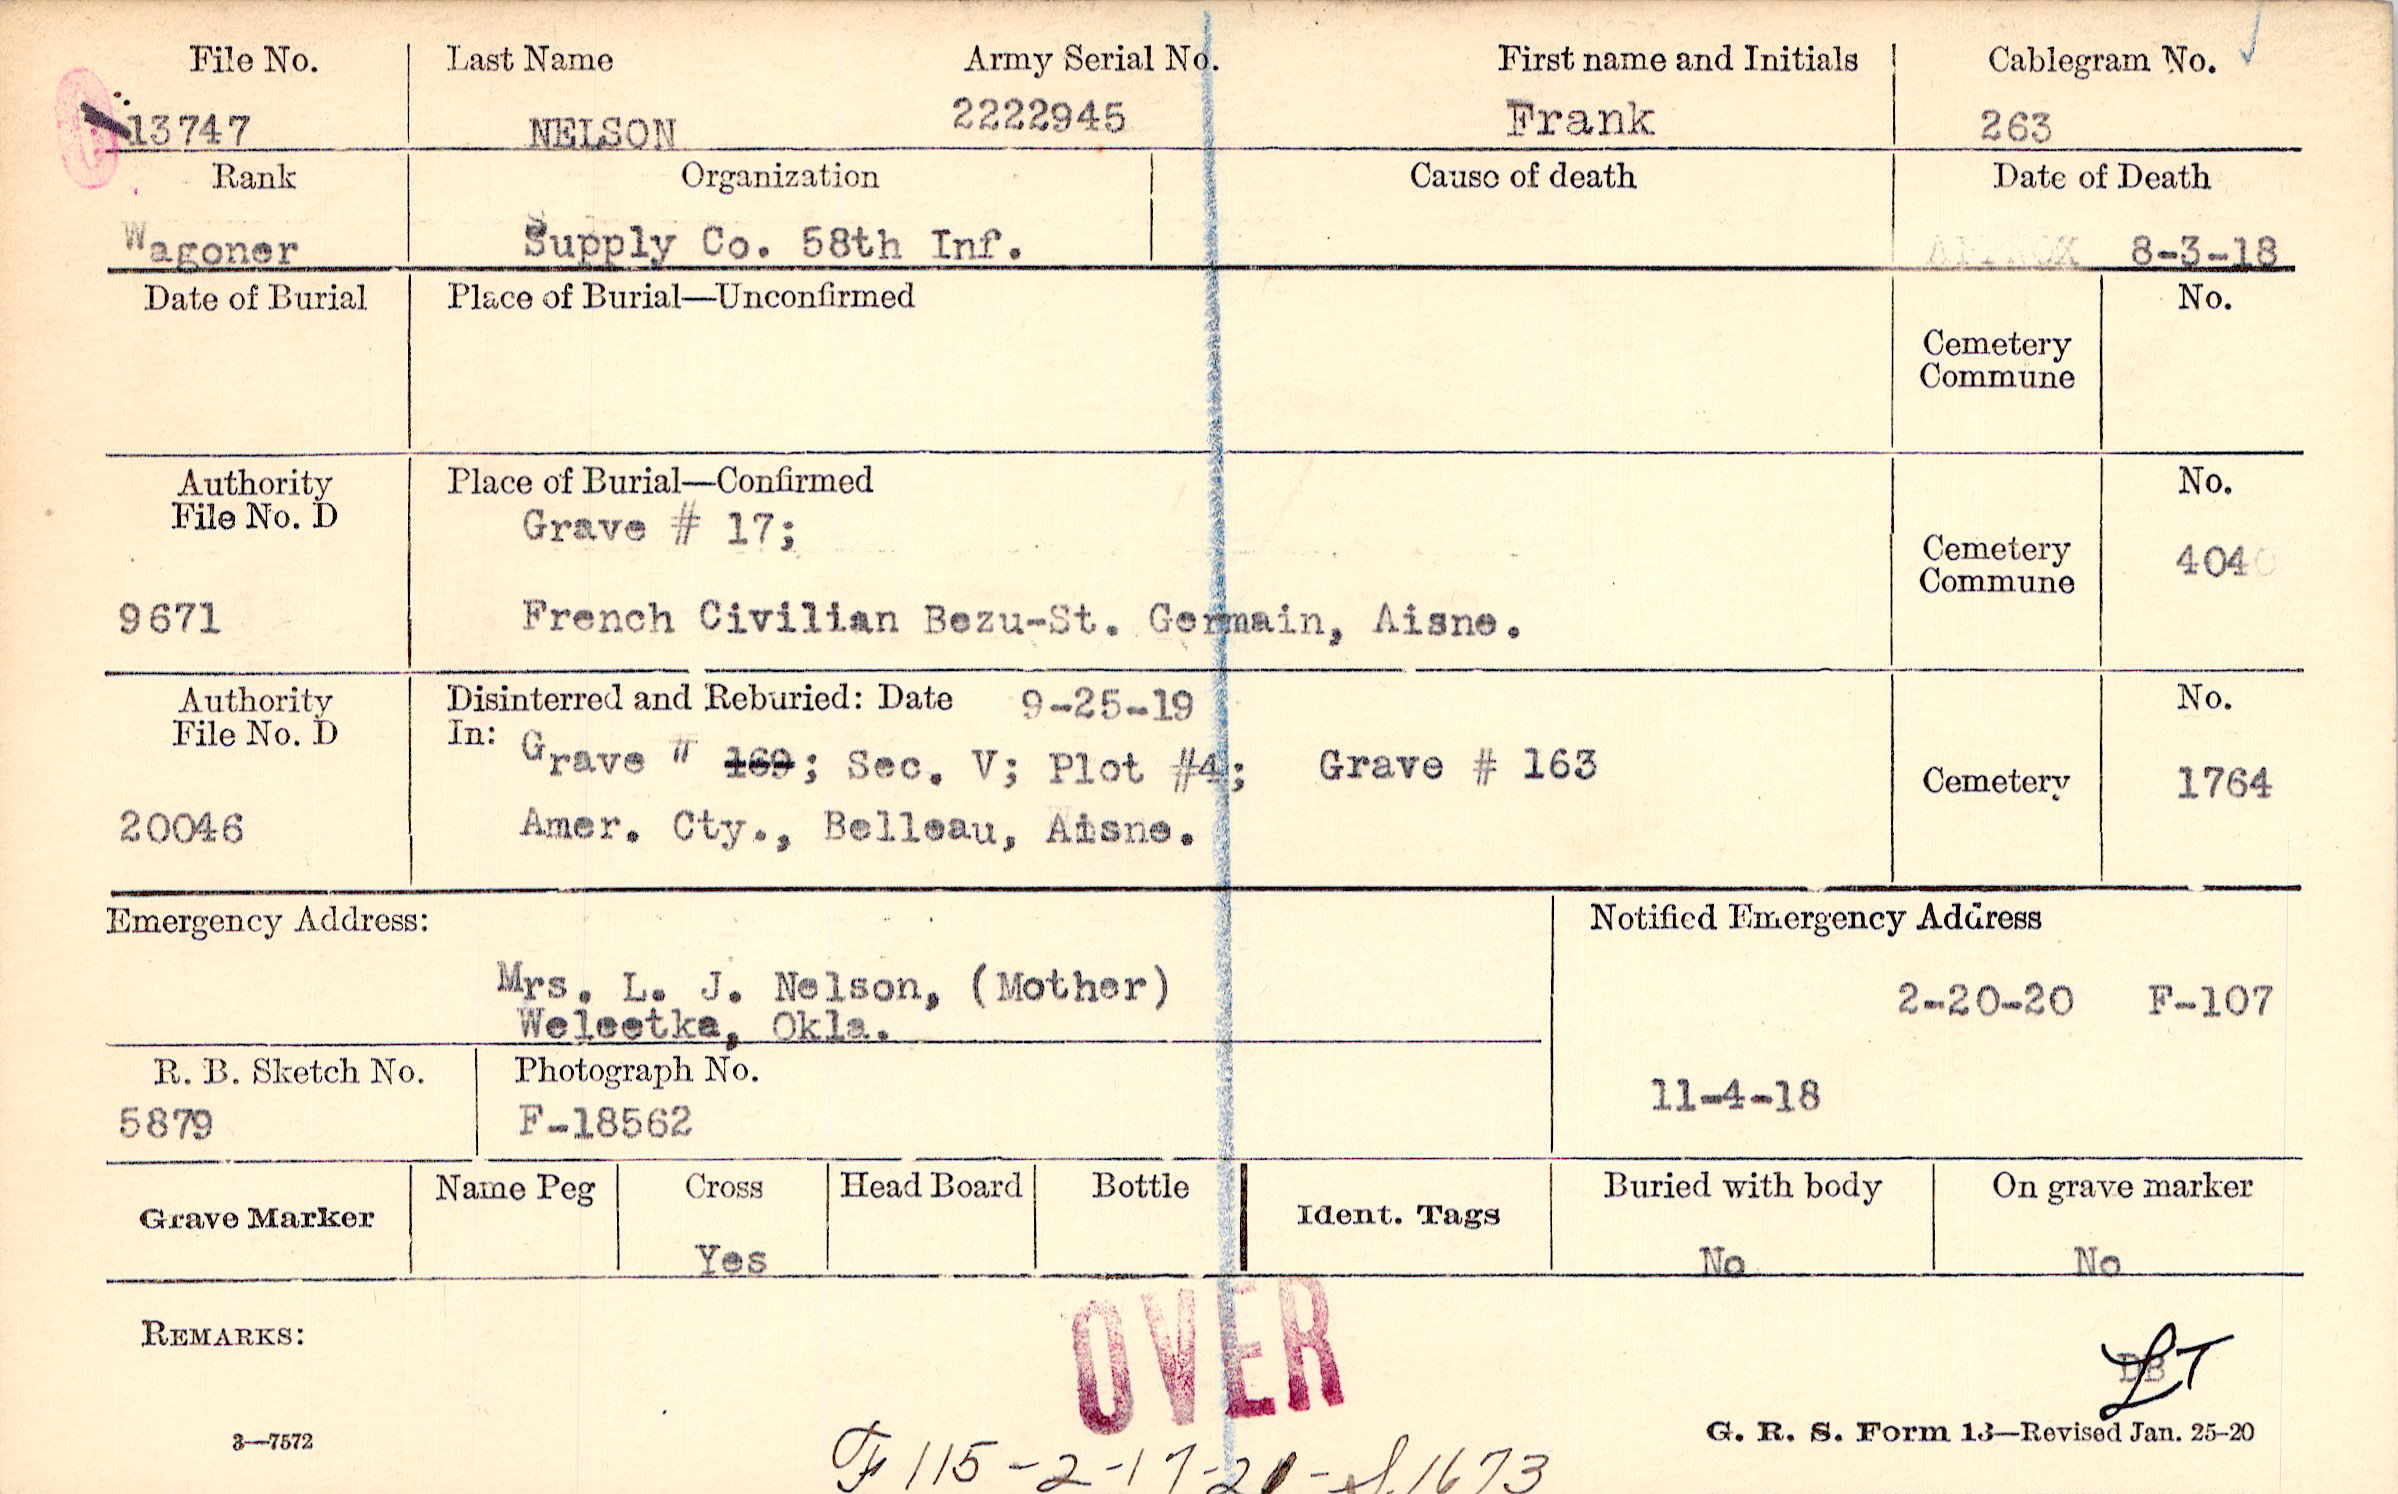 File No. Last Name Army Serial No. First name and Initials Cablegram No.
13747 NELSON 2222945 Frank 263
Rank Organization Cause of death Date of Death
Wagoner Supply Co. 58th Inf. 8-3-18
Date of Burial Place of Burial—Unconfirmed No.
Cemetery
Commune
Authority Place of Burial—Confirmed No.
File No. D Grave # 17;
Cemetery 404
Commune
9671 French Civilian Bezu-St. Germain, Aisne.
Authority Disinterred and Reburied: Date 9-25-19 No.
File No. D In: Grave # 169; Sec. V; Plot #4; Grave # 163
Cemetery 1764
20046 Amer. Cty., Belleau, Aisne.
Emergency Address: Notified Emergency Address
Mrs. L. J. Nelson, (Mother) 2-20-20 F-107
Weleetka, Okla.
R. B. Sketch No. Photograph No.
5879 F-18562 11-4-18
Name Peg Cross Head Board Bottle Buried with body On grave marker
Grave Marker Ident. Tags
Yes No No
OVER
REMARKS:
LT
3—7572 G. R. S. Form 13—Revised Jan. 25-20